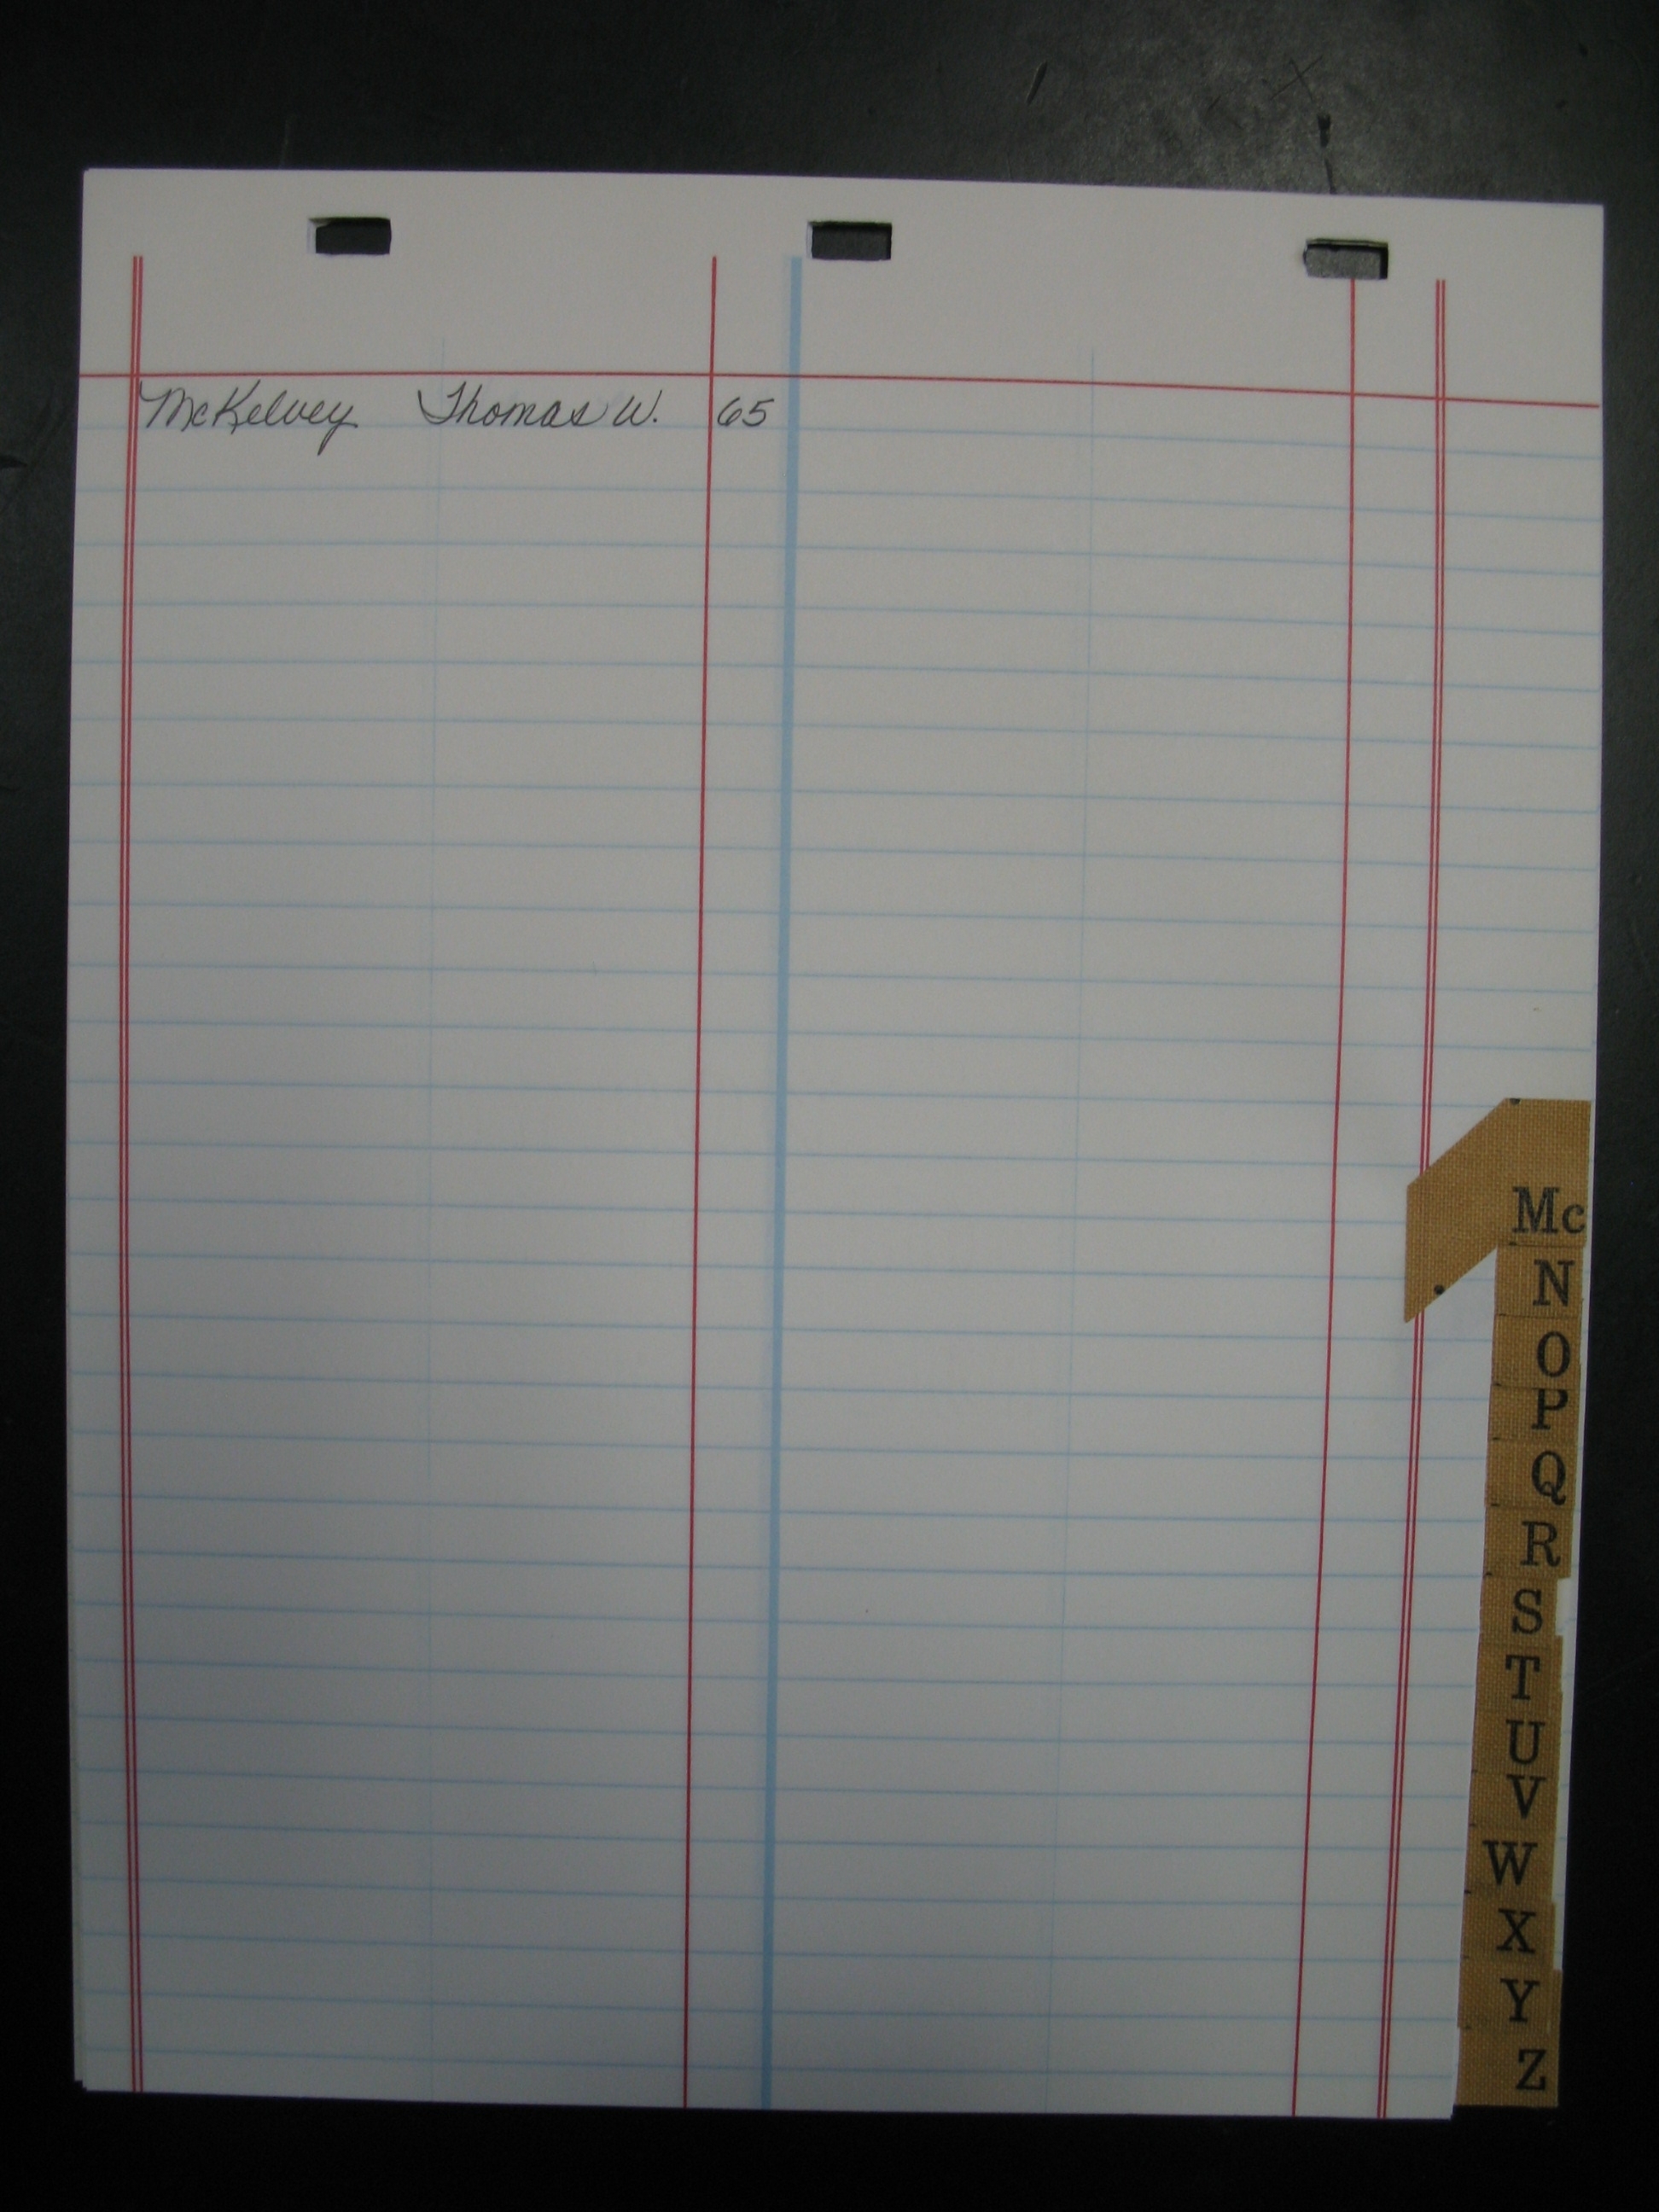 McKelvey Thomas W. 65
Mc
N
O
P
Q
R
S
T
U
V
W
X
Y
Z